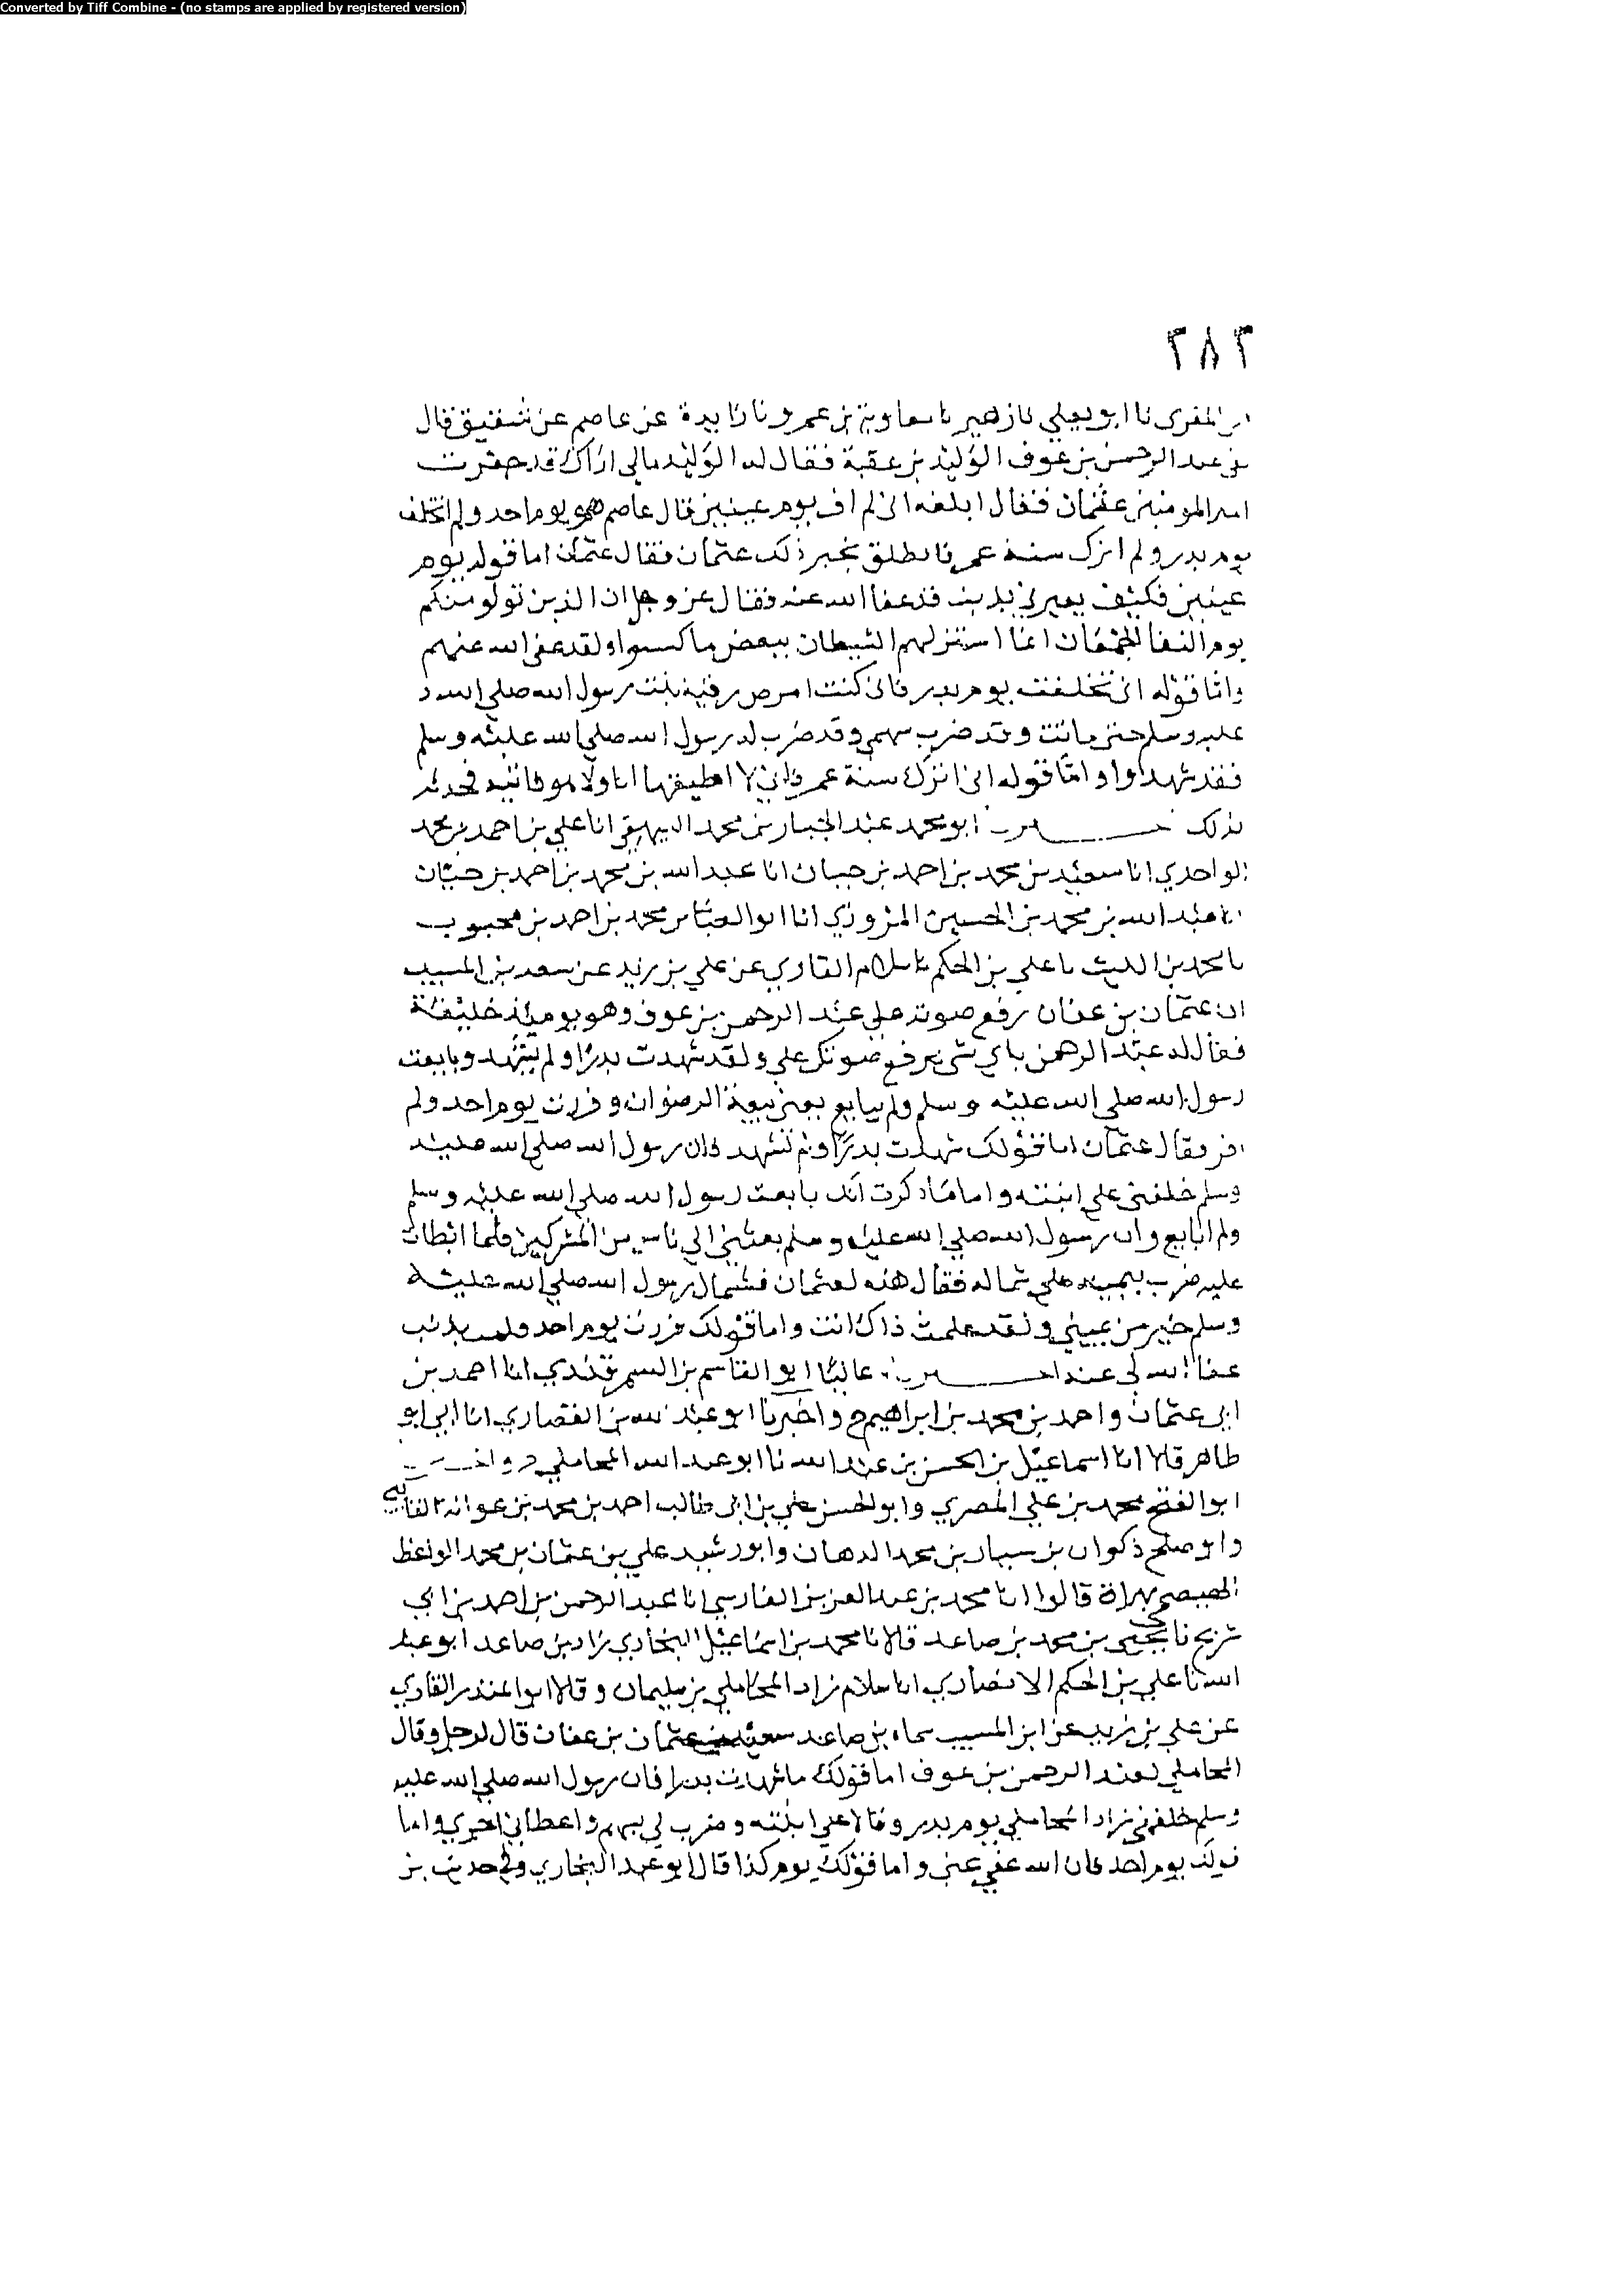 Converted by Tiff Combine - (no stamps are applied by registered version)
٢٨٣
المقرى نا ابو يعلي نا زهير نا معاوية بن عمرو نا زايدة عن عاصم عن شقيق قال
عبد الرحمن بن عوف الوليد بن عقبة فقال له الوليد مالي اراك قد جفوت
امير المومنين عثمان فقال ابلغه انى لم افر يوم عينين قال عاصم هو يوم احد ولم اتخلف
يوم بدر ولم اترك سنة عمر فانطلق يخبر ذلك عثمان فقال عثمان اما قوله يوم
عينين فكيف يعيرني بذنب قد عفا الله عنه فقال عز وجل ان الذين تولو منكم
يوم التقا الجمعان انما استزلهم الشيطان ببعض ما كسبوا ولقد عفى الله عنهم
واما قوله انى تخلفت يوم بدر فانى كنت امرض رقية بنت رسول الله صلي الله
عليه وسلم حتى ماتت وقد ضرب سهم وقد ضرب له رسول الله صلي الله عليه وسلم
فقد شهد واما قوله انى اترك سنة عمر فاني لا اطيقها انا ولا هو فاتيه فحدثه
بذلك ابو محمد عبد الجبار بن محمد البيهقي انا علي بن احمد بن محمد
الواحدي انا سعيد بن محمد بن احمد بن حبان انا عبد الله بن محمد بن احمد بن حبان
انا عبد الله بن محمد بن الحسين المروزي انا ابو العباس محمد بن احمد بن محبوب
نا محمد بن الليث نا علي بن الحكم نا سلام القاري عن علي بن زيد عن سعيد بن المسيب
ان عثمان بن عفان رفع صوته على عبد الرحمن بن عوف وهو يوميذ خليفة
فقال له عبد الرحمن باي شى ترفع صوتك علي ولقد شهدت بدرا ولم تشهد وبايعت
رسول الله صلي الله عليه وسلم ولم تبايع يعني بيعة الرضوان وفررت يوم احد ولم
افر فقال عثمان اما قولك شهدت بدرا ولم تشهد فان رسول الله صلي الله عليه
وسلم خلفني علي ابنته واما ما ذكرت انك بايعت رسول الله صلي الله عليه وسلم
ولم ابايع وان رسول الله صلي الله عليه وسلم بعثني الي ناس من المشركين فلما ابطات
عليه ضرب بيمينه على شماله فقال هذه لعثمان فشمال رسول الله صلي الله عليه
وسلم خير من يميني ولقد علمت ذاك انت واما قولك فررت يوم احد بذنب
عفا الله لى عنه ابو القاسم بن السمرقندي انا احمد بن
ابي عثمان واحمد بن محمد بن ابراهيم ح واخبرنا ابو عبد الله بن القصاري انا ابي ابو
طاهر قالا انا اسماعيل بن الحسن بن عبد الله نا ابو عبد الله المحاملي ح
ابو الفتح محمد بن علي المصري وابو الحسن علي بن ابي طالب احمد بن محمد بن عوانه
وابو صلح ذكوان بن سيار بن محمد الدهان وابو رشيد علي بن عثمان بن محمد الواعظ
بهراة قالوا انا محمد بن عبد العزيز الفارسي انا عبد الرحمن بن احمد بن ابي
شريح نا يحيى بن محمد بن صاعد قالا نا محمد بن اسماعيل البخاري زاد بن صاعد ابو عبد
الله نا علي بن الحكم الانصاري انا سلام زاد المحاملي بن سليمان وقالا ابو المنذر القاري
عن علي بن زيد عن ابن المسيب سماه بن صاعد سعيد عثمان بن عفان قال لرجل وقال
المحاملي لعبد الرحمن بن عوف اما قولك ما شهدت بدرا فان رسول الله صلي الله عليه
وسلم خلفني زاد المحاملي يوم بدر وقالا علي ابنته وضرب لي بسهم واعطاني اجري واما
قولك يوم احد فان الله عفى عني واما قولك يوم كذا قال ابو عبد البخاري وفي حديث بن